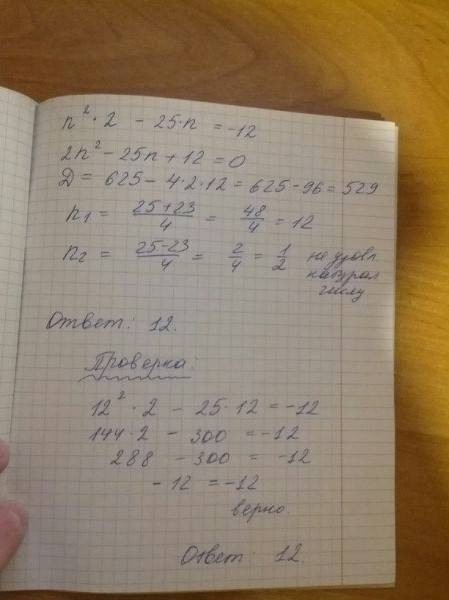 n² · 2 - 25 · n = -12
2n² - 25n + 12 = 0
D = 625 - 4·2·12 = 625 - 96 = 529
n1 = (25+23)/4 = 48/4 = 12
n2 = (25-23)/4 = 2/4 = 1/2 не удовл.
натурал
числу
Ответ: 12.
Проверка:
12² · 2 - 25 · 12 = -12
144 · 2 - 300 = -12
288 - 300 = -12
-12 = -12
верно.
Ответ: 12.